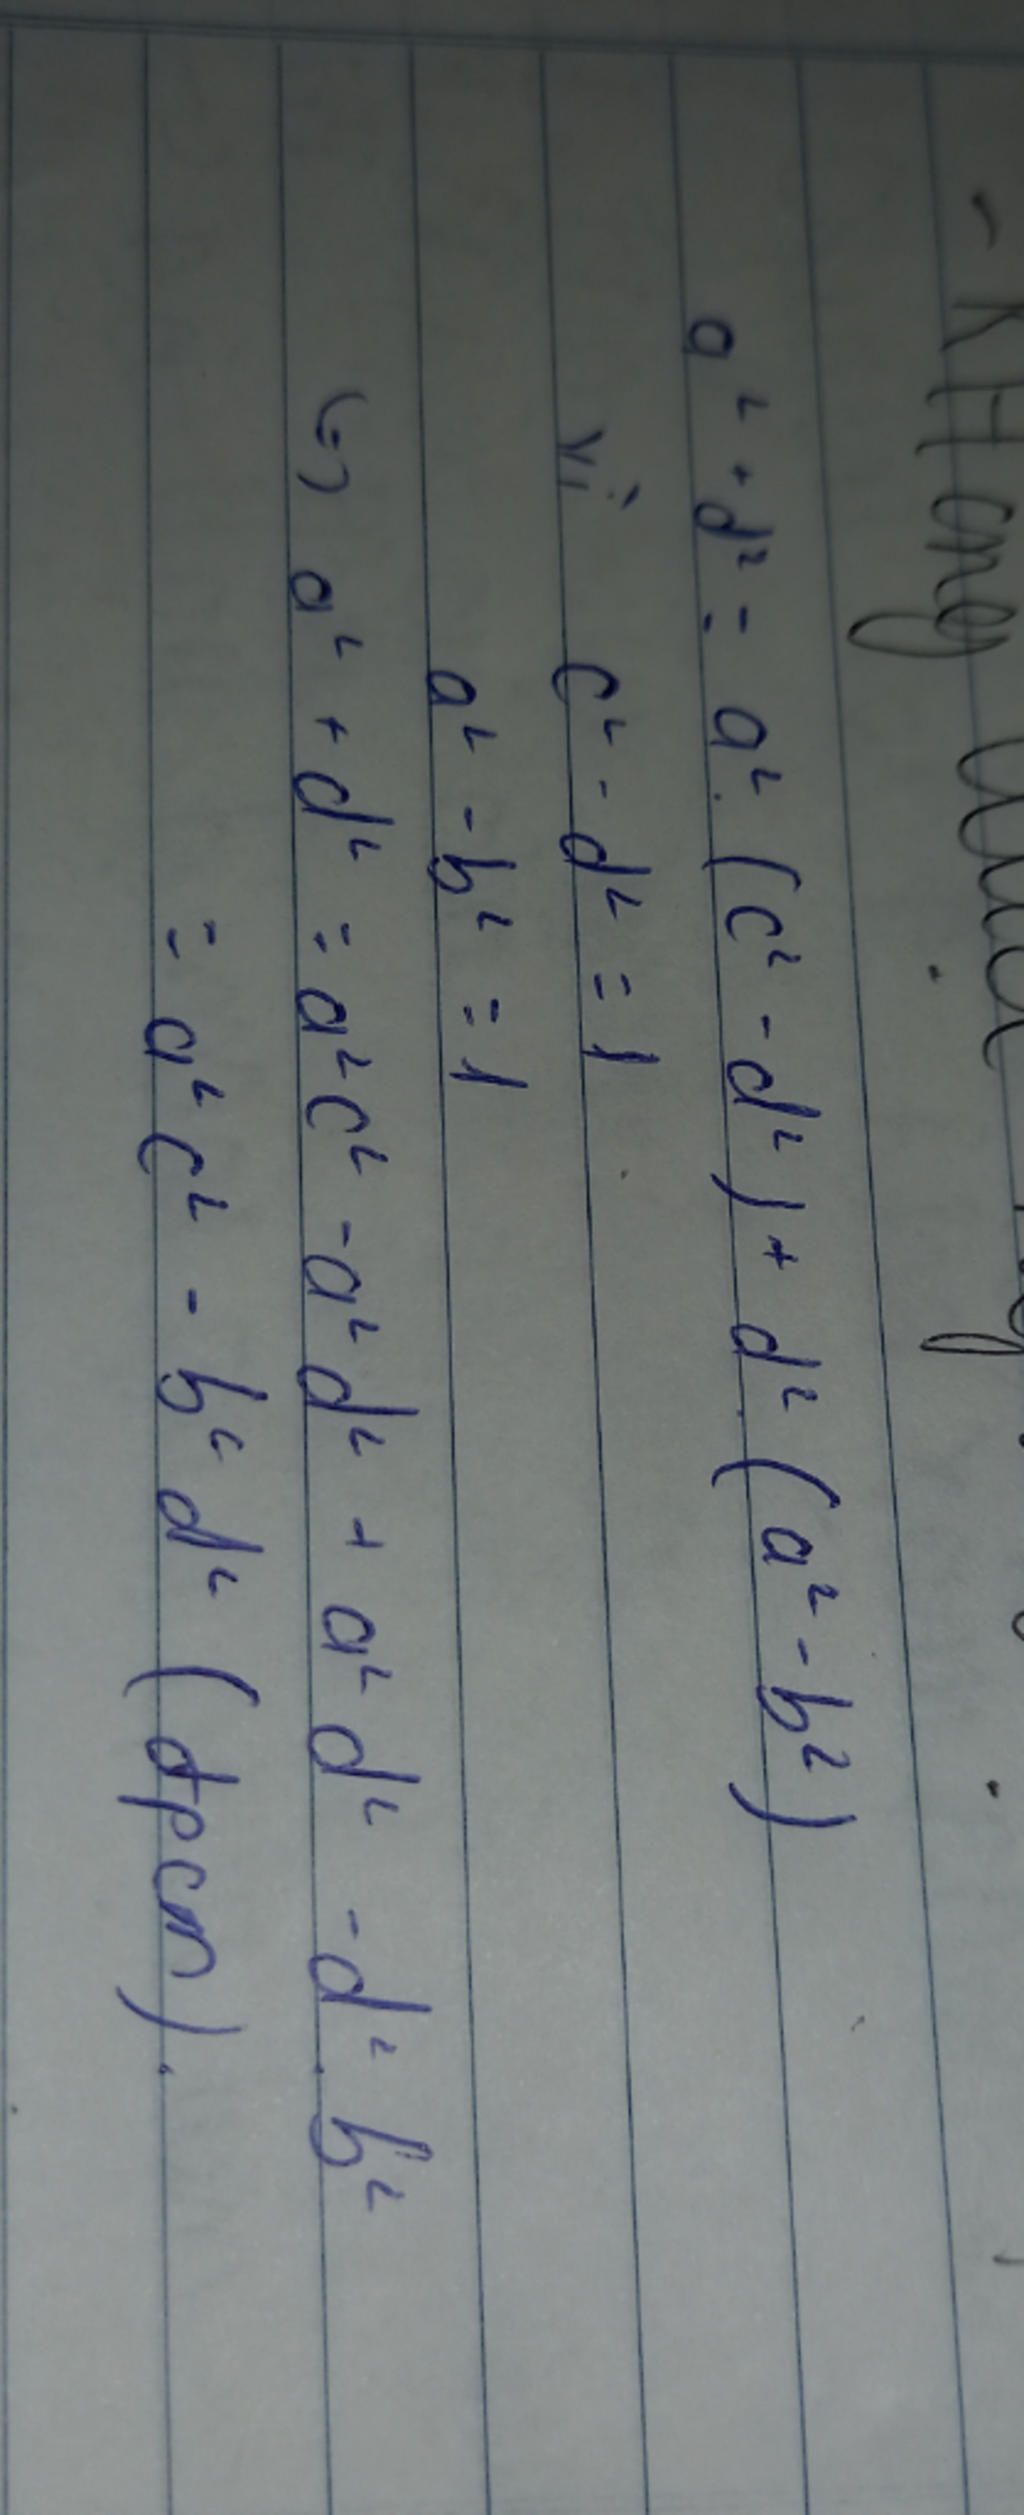 a² + d² = a².(c² - d²) + d².(a² - b²)
vì c² - d² = 1
a² - b² = 1
(=) a² + d² = a²c² - a²d² + a²d² - d².b²
= a²c² - b²d² (đpcm).